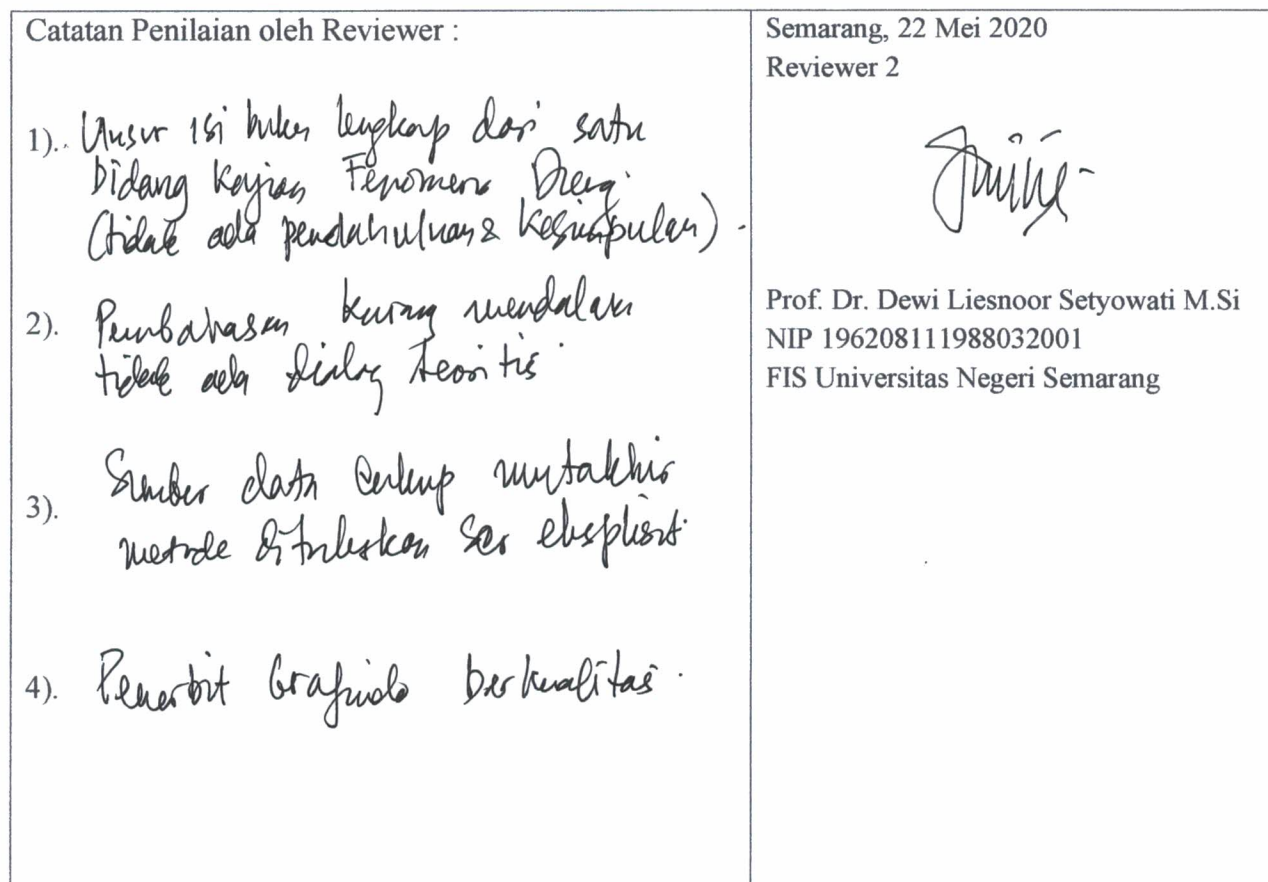 Catatan Penilaian oleh Reviewer :
1). Unsur isi buku lengkap dari satu
bidang kajian Fenomena Dieng
(tidak ada pendahuluan & kesimpulan).
2). Pembahasan kurang mendalam
tidak ada dialog teoritis
3). Sumber data cukup mutakhir
metode dituliskan sec eksplisit.
4). Penerbit Grafindo berkualitas.
Semarang, 22 Mei 2020
Reviewer 2
Prof. Dr. Dewi Liesnoor Setyowati M.Si
NIP 196208111988032001
FIS Universitas Negeri Semarang